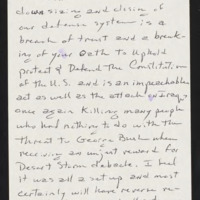 down sizing and closing of
our defense system is a
breach of trust and a break-
ing of your Oath to Uphold
protect & Defend The Constitution
of the U.S. and is an impeachable
act as well as the attack on Iraq
once again Killing many people
who had nothing to do with the
threat to George Bush when
receiving an unjust reward for
Desert Storm debacle. I feel
it was all a set up and most
certainly will have reverse re-